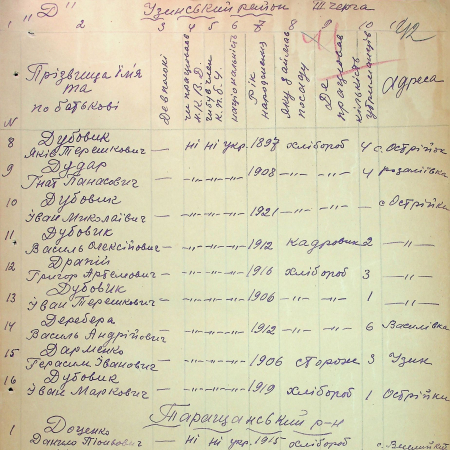 "Д" Узинський район ІІІ черга
1 2 3 4 5 6 7 8 9 0
42
N
Прізвища ім'я
та
по батькові
Де в полоні
чи працював
Н.К.В.Д.
чи був член
К.П.б.У.
національність
Рік
народження
яку займав
посаду
Де
працював
кількість
утриманців
Адреса
8 Дубовик
Яків Терешкович — ні ні укр. 1897 хлібороб 4 с. Острійки
9 Дудар
Гнат Панасович — -„- -„- -„- 1908 -„- -„- 4 Розаліївка
10 Дубовик
Іван Миколаївич — -„- -„- -„- 1921 -„- — с. Острійки
11 Дубовик
Василь Олексійович — -„- -„- -„- 1912 Кадровик 2 -„-
12 Драпій
Григор Артемович — -„- -„- -„- 1916 хлібороб 3 -„-
13 Дубовик
Іван Терешкович — -„- -„- -„- 1906 -„- -„- 1 -„-
14 Деребера
Василь Андрійович — -„- -„- -„- 1912 -„- -„- 6 Василівка
15 Дарменко
Герасим Іванович — -„- -„- -„- 1906 сторож 3 Узин
16 Дубовик
Іван Маркович — -„- -„- -„- 1919 хлібороб 1 Острійки
Таращанський р-н
1 Доценко
Данило — ні ні укр. 1915 хлібороб